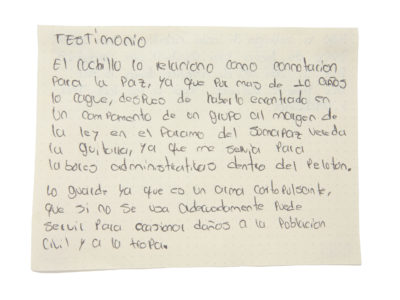 Testimonio
El cuchillo lo relaciono como connotacion
Para la Paz, ya que Por mas de 10 años
lo cargue, despues de haberlo encontrado en
un campamento de un grupo al margen de
la ley en el Paramo del Sumapaz vereda
la guitarra, ya que me servia Para
labores administrativas dentro del Peloton.
lo guarde ya que es un arma cortopulsante,
que si no se usa adecuadamente Puede
servir Para ocasionar daños a la Poblacion
Civil y a la tropa.